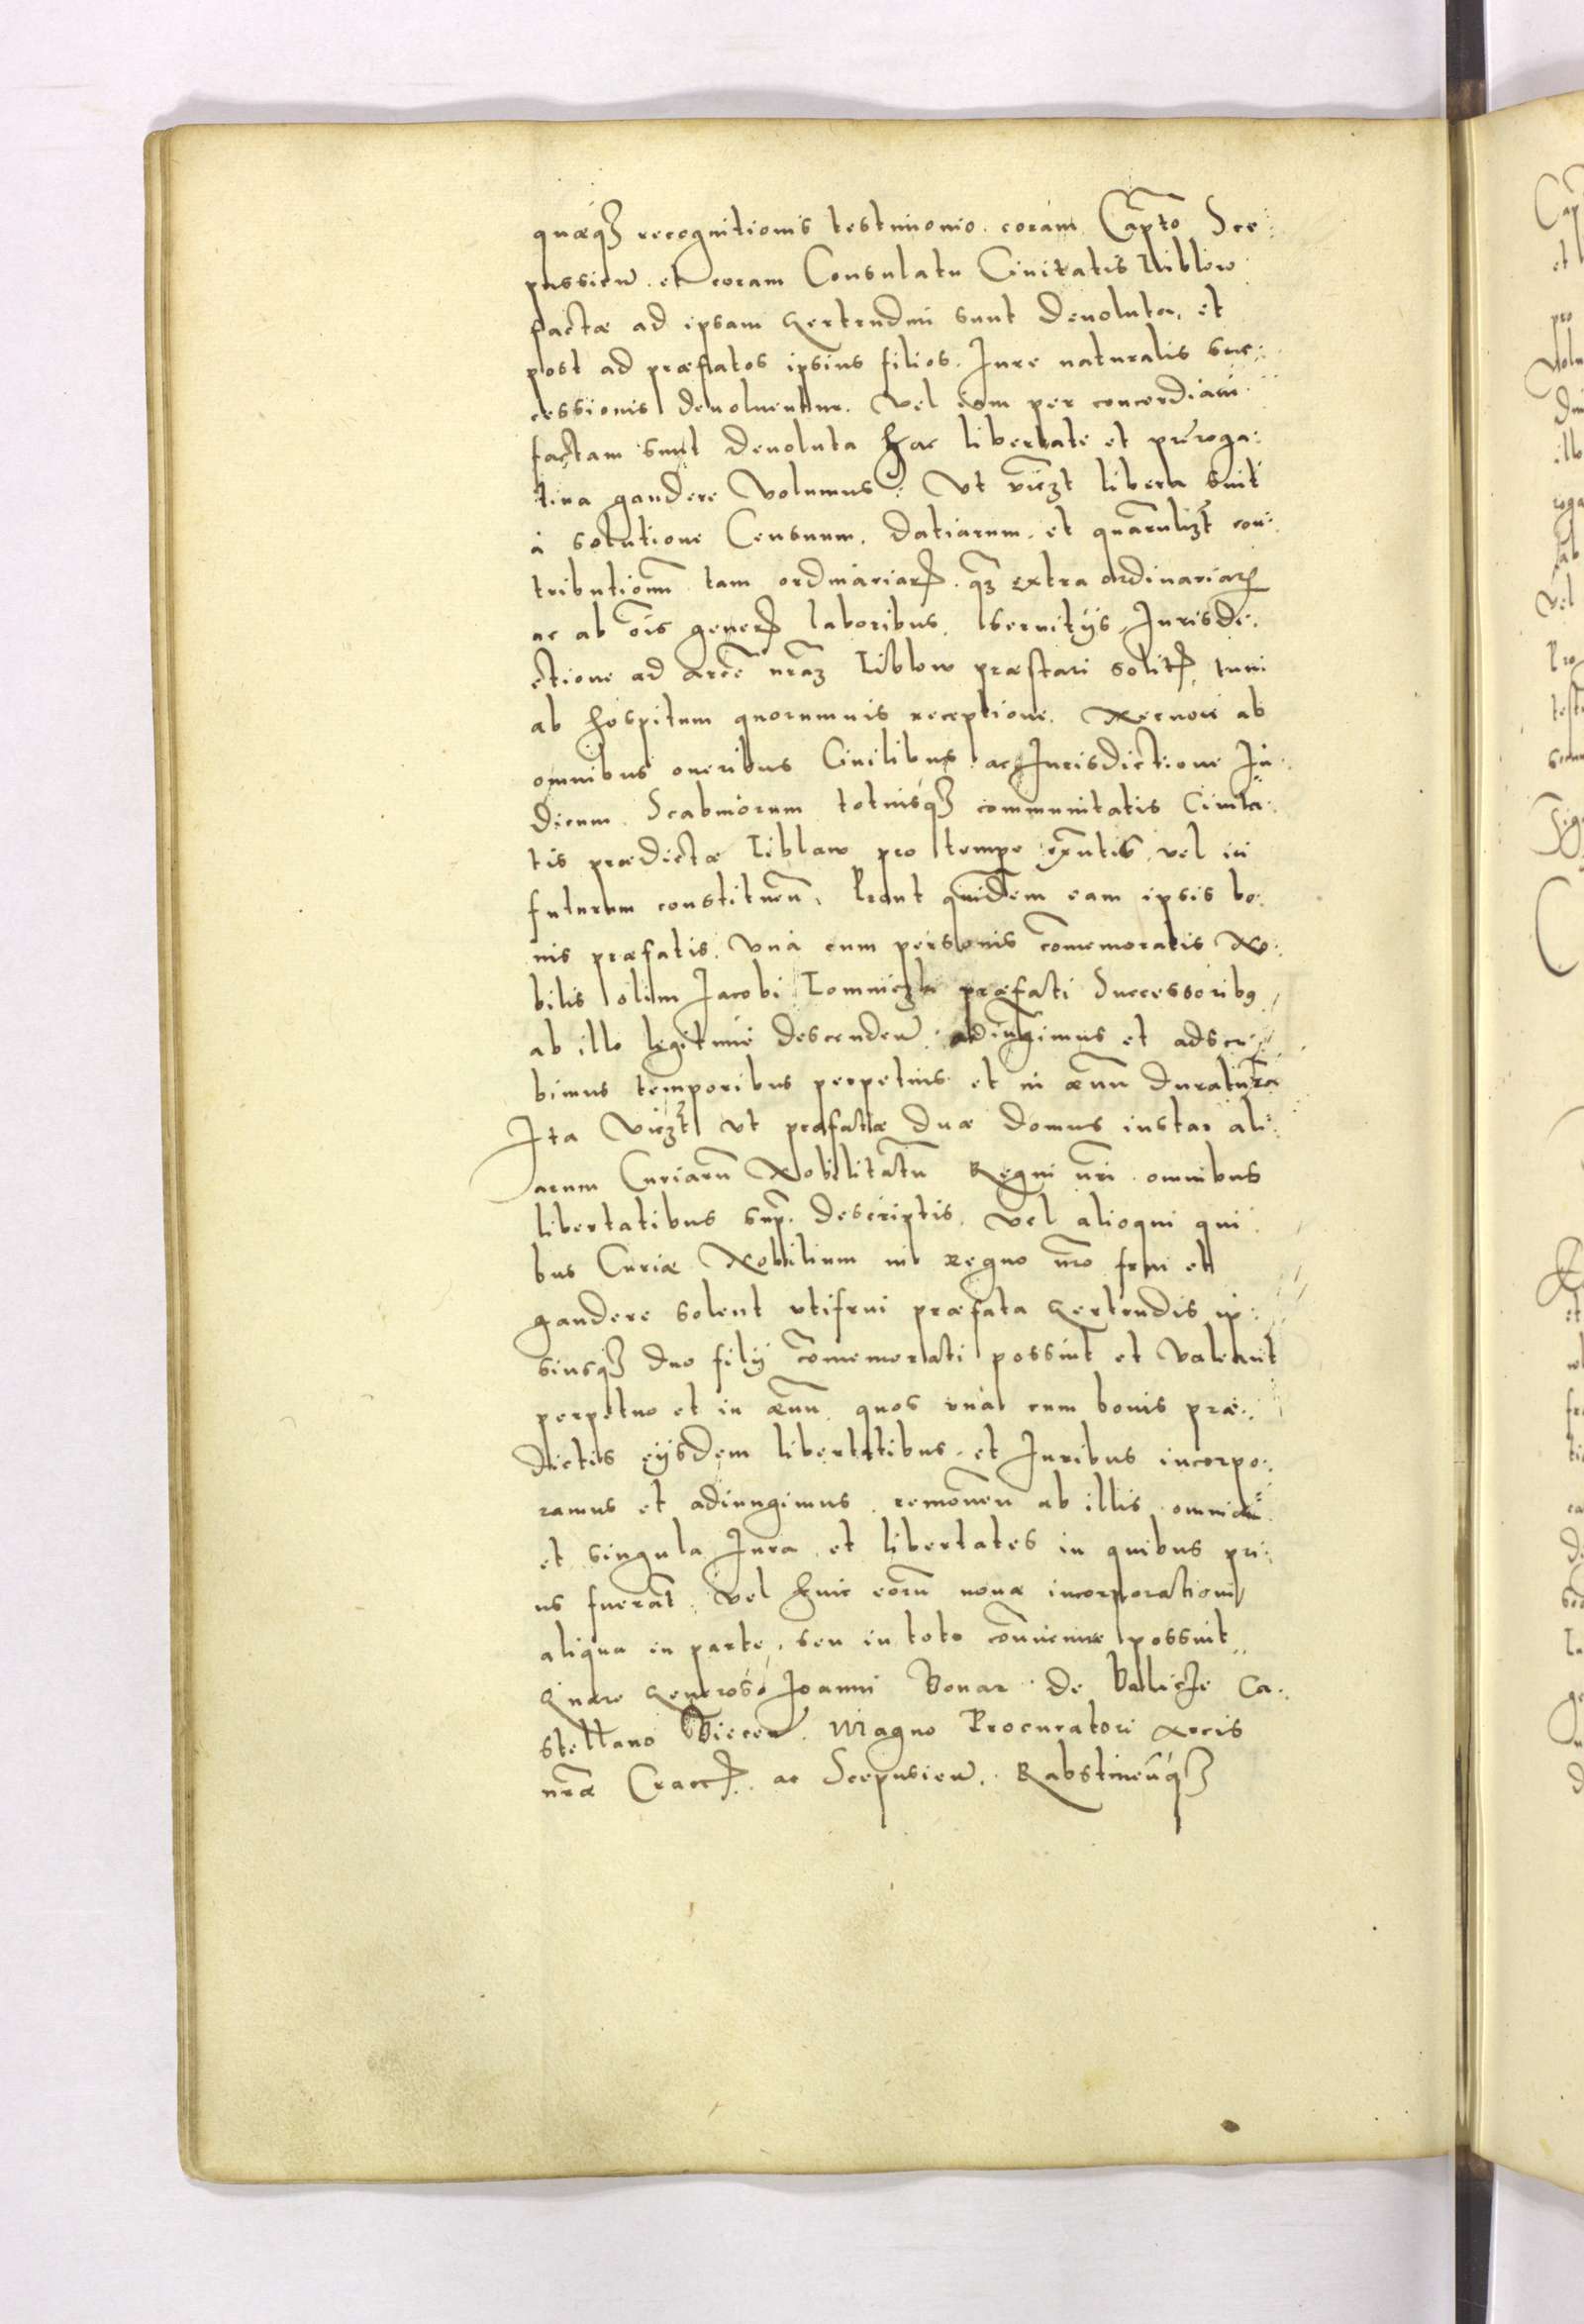 quæq₃ recognitionis testimonio coram Capto Sce:
pusien. et coram Consulatu Ciuitatis Liblow
factæ ad ipsam Gertrudim sunt deuoluta, et
post ad præfatos ipsius filios Iure naturalis suc:
cessionis deuoluentur. Vel iam per concordiam
factam sunt deuoluta hac libertate et preroga:
tiua gaudere volumus: Vt viczt libera sint
à solutione Censuum, datiarum, et quarulizt con:
tributionũ tam ordinariarꝝ q₃ extra ordinariarꝝ
ac ab ois generꝝ laboribus, seruitijs Iurisdi:
ctione ad arcẽ nrãz Liblow præstari solitꝝ, tum
ab hospitum quorumuis receptione. Necnon ab
omnibus oneribus Ciuilibus ac Iurisdictione Iu:
dicum Scabinorum totiusq₃ communitatis Ciuita:
tis prædictæ Liblow pro tempe exntis vel in
futurum constituen. Prout quidem eam ipsis bo:
nis præfatis, vnà cum personis comemoratis No:
bilis olim Iacobi Lomniczki præfati Successoribꝰ
ab illo legitimè descenden adiungimus et adscri:
bimus temporibus perpetuis et in æuũ duratura
Ita viczt vt præfatæ duæ domus instar ali:
arum Curiarũ Nobilitatũ Regni nri omnibus
libertatibus sup. descriptis, vel alioqui qui:
bus Curiæ Nobilium in regno nro frui et
gaudere solent vtifrui præfata Gertrudis ip:
siusq₃ duo filij comemorati possint et valeant
perpetuo et in æuũ, quos vnà cum bonis præ:
dictis eijsdem libertatibus et Iuribus incorpo:
ramus et adiungimus remouen ab illis omnia
et singula Iura et libertates in quibus pri:
us fuerãt, vel huic eorũ nouæ incorporationi
aliqua in parte, seu in toto conuenire possint
Quare Generoso Ioanni Bonar de Balicze Ca:
stellano Biecen. Magno Procuratori Arcis
nræ Craccꝝ. ac Scepusien. Rabstinẽnq₃